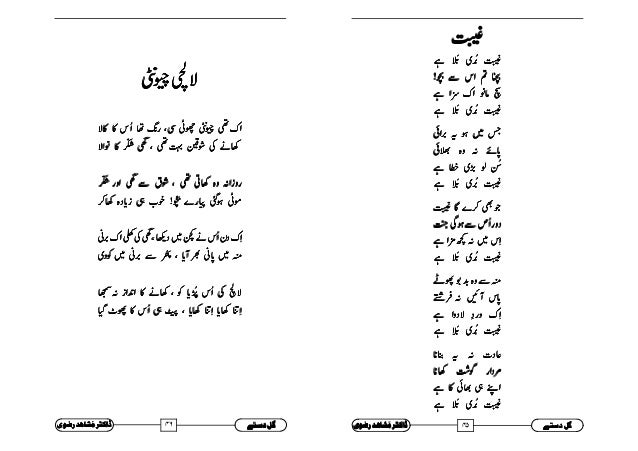 غیبت
غیبت بُری بَلا ہے
بچنا تم اس سے بچو!
سچ مانو اک سزا ہے
غیبت بُری بَلا ہے
جس میں ہو یہ برائی
پائے نہ وہ بھلائی
سُن لو بڑی خطا ہے
غیبت بُری بَلا ہے
جو بھی کرے گا غیبت
دور اُس سے ہوگی جنت
اِس میں نہ کچھ مزا ہے
غیبت بُری بَلا ہے
منہ سے وہ بدبو پھوٹے
پاس آئیں نہ فرشتے
اِک دردِ لادوا ہے
غیبت بُری بَلا ہے
عادت نہ یہ بنانا
مردار گوشت کھانا
اپنے ہی بھائی کا ہے
غیبت بُری بَلا ہے
گل دستے ۳۵ ڈاکٹر مُشاھد رضوی
لالچی چیونٹی
اک تھی چیونٹی چھوٹی سی، رنگ تھا اُس کا کالا
کھانے کی شوقین بہت تھی، گھی شکّر کا نوالا
روزانہ وہ کھاتی تھی، شوق سے گھی اور شکّر
موٹی ہوگئی پیارے بچّو! خوب ہی زیادہ کھاکر
اِک دن اُس نے کچن میں دیکھا، گھی کی کھلی اک برنی
منہ میں پانی بھر آیا، پھر سے برنی میں کودی
لالچ کی اُس پُڑیا کو، کھانے کا انداز نہ سمجھا
اِتنا کھایا اِتنا کھایا، پیٹ ہی اُس کا پھوٹ گیا
گل دستے ۳۶ ڈاکٹر مُشاھد رضوی